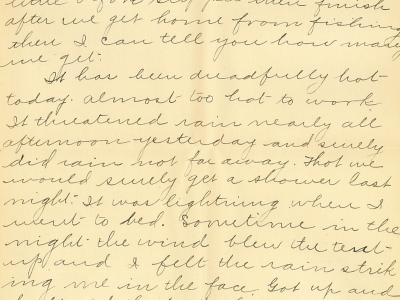 little before Guy, then finish
after we get home from fishing
then I can tell you how many
we get.
It has been dreadfully hot
today. almost too hot to work
It threatened rain nearly all
afternoon yesterday and surely
did rain not far away. Thot we
would surely get a shower last
night. It was lightning when I
went to bed. Sometime in the
night the wind blew the tent
up and I felt the rain strik
ing me in the face. Got up and